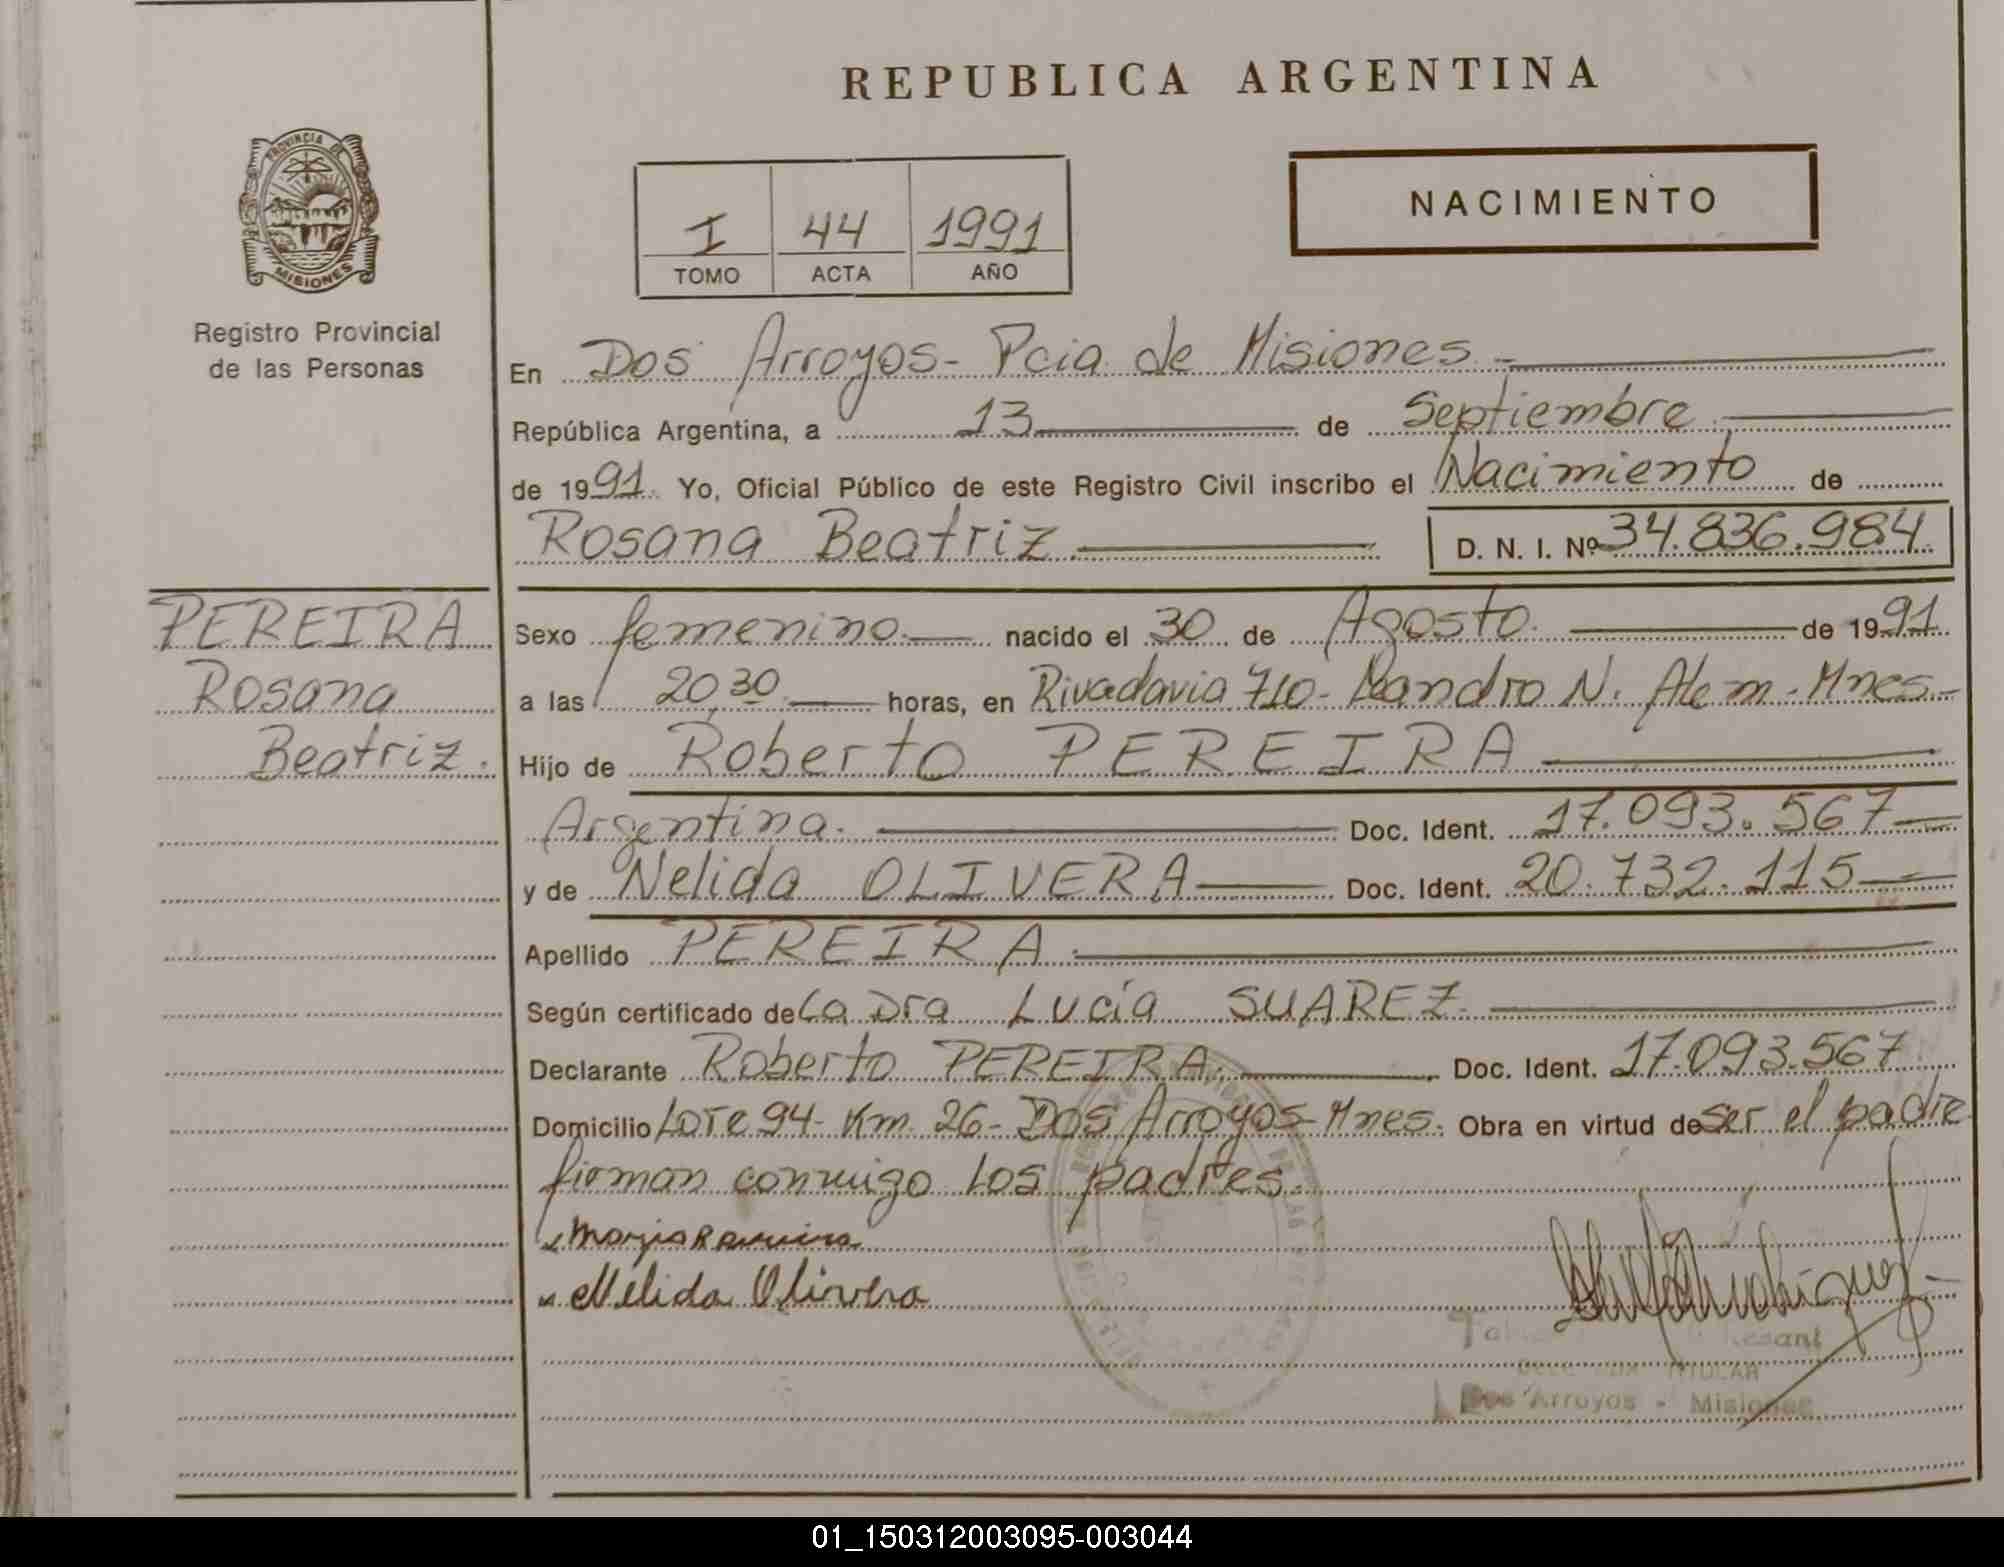 REPUBLICA ARGENTINA
PROVINCIA DE
MISIONES
Registro Provincial
de las Personas
NACIMIENTO
I 44 1991
TOMO ACTA AÑO
En Dos Arroyos- Pcia de Misiones.-
República Argentina, a 13 de Septiembre
de 1991. Yo, Oficial Público de este Registro Civil inscribo el Nacimiento de
Rosana Beatriz D. N. I. Nº 34.836.984
PEREIRA
Rosana
Beatriz.
Sexo femenino nacido el 30 de Agosto de 1991
a las 20,30 horas, en Rivadavia 710- Leandro N. Alem- Mnes.-
Hijo de Roberto PEREIRA
Argentina. Doc. Ident. 17.093.567
y de Nelida OLIVERA Doc. Ident. 20.732.115
Apellido PEREIRA
Según certificado de La Dra Lucía SUAREZ
Declarante Roberto PEREIRA Doc. Ident. 17.093.567
Domicilio Lote 94- Km 26- Dos Arroyos- Mnes. Obra en virtud de ser el padre
firman conmigo los padres.
Nelida Olivera
TITULAR
Dos Arroyos - Misiones
01_150312003095-003044